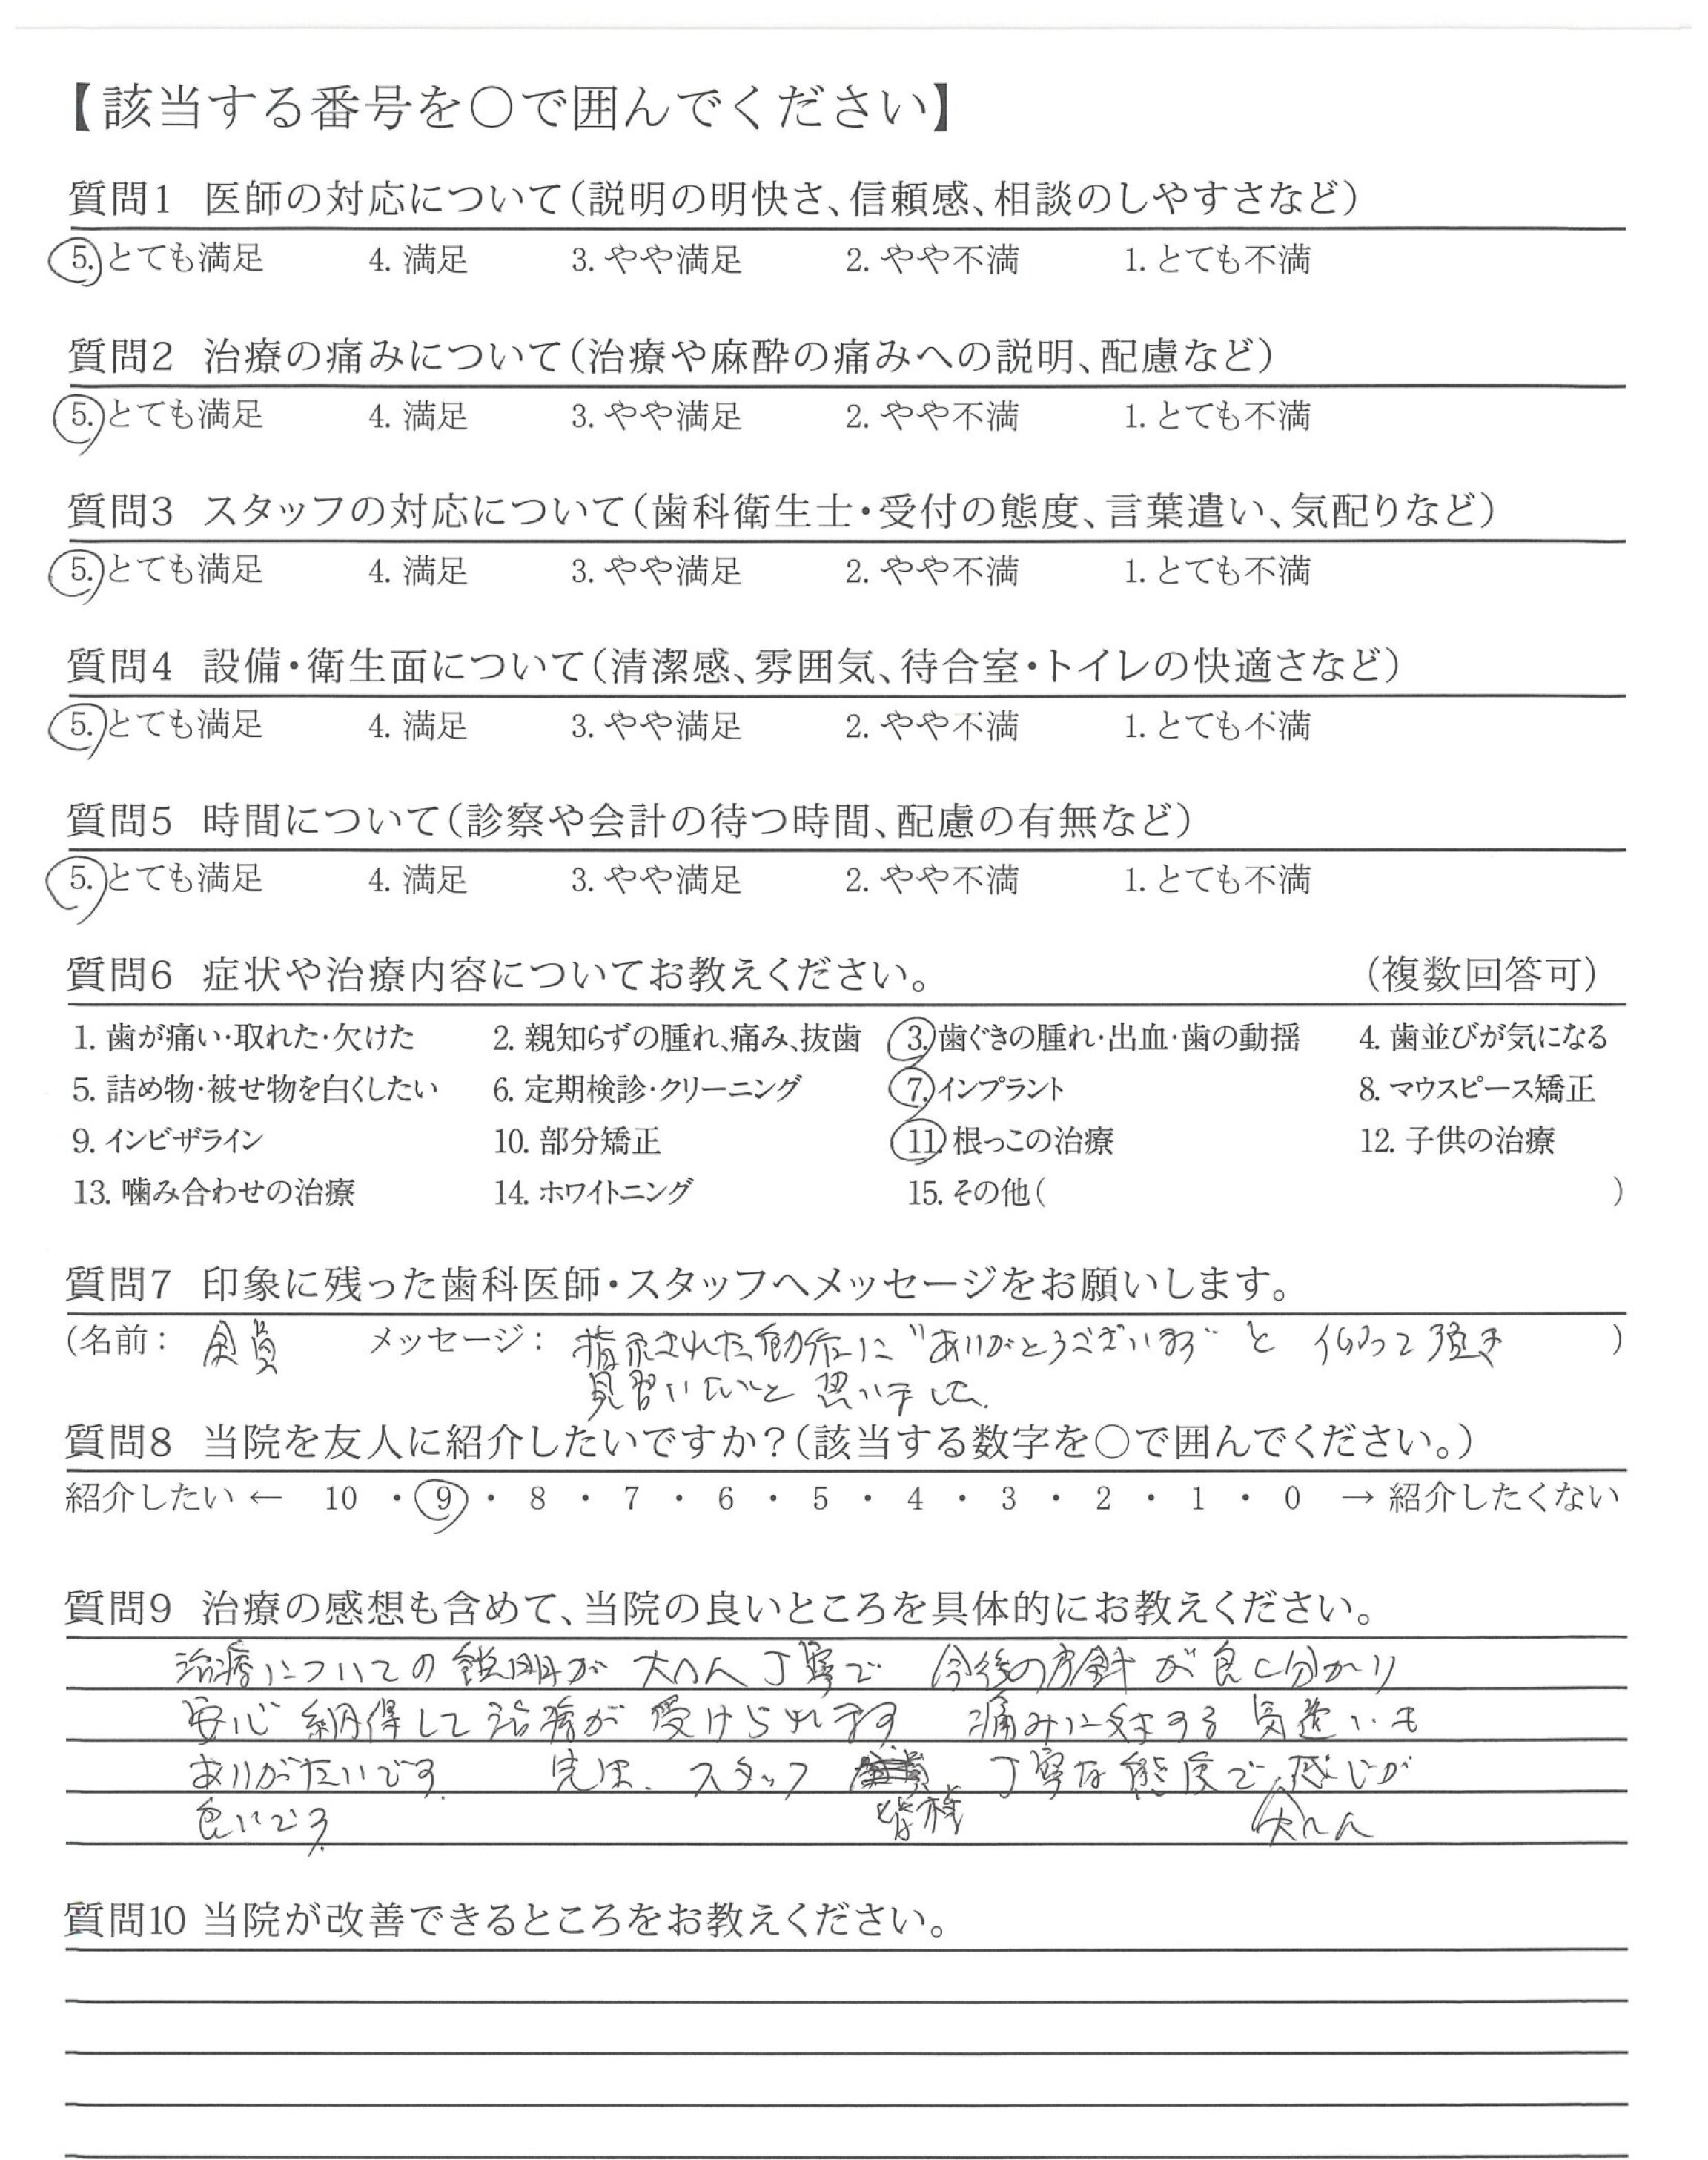 【該当する番号を○で囲んでください】
質問1 医師の対応について(説明の明快さ、信頼感、相談のしやすさなど)
5. とても満足 4. 満足 3. やや満足 2. やや不満 1. とても不満
質問2 治療の痛みについて(治療や麻酔の痛みへの説明、配慮など)
5. とても満足 4. 満足 3. やや満足 2. やや不満 1. とても不満
質問3 スタッフの対応について(歯科衛生士・受付の態度、言葉遣い、気配りなど)
5. とても満足 4. 満足 3. やや満足 2. やや不満 1. とても不満
質問4 設備・衛生面について(清潔感、雰囲気、待合室・トイレの快適さなど)
5. とても満足 4. 満足 3. やや満足 2. やや不満 1. とても不満
質問5 時間について(診察や会計の待つ時間、配慮の有無など)
5. とても満足 4. 満足 3. やや満足 2. やや不満 1. とても不満
質問6 症状や治療内容についてお教えください。 (複数回答可)
1. 歯が痛い・取れた・欠けた 2. 親知らずの腫れ、痛み、抜歯 3. 歯ぐきの腫れ・出血・歯の動揺 4. 歯並びが気になる
5. 詰め物・被せ物を白くしたい 6. 定期検診・クリーニング 7. インプラント 8. マウスピース矯正
9. インビザライン 10. 部分矯正 11. 根っこの治療 12. 子供の治療
13. 噛み合わせの治療 14. ホワイトニング 15. その他( )
質問7 印象に残った歯科医師・スタッフへメッセージをお願いします。
(名前: 全員 メッセージ: 指示された動作に"ありがとうございます"と 仰って頂き )
見習いたいと思いました.
質問8 当院を友人に紹介したいですか?(該当する数字を○で囲んでください。)
紹介したい ← 10 ・ 9 ・ 8 ・ 7 ・ 6 ・ 5 ・ 4 ・ 3 ・ 2 ・ 1 ・ 0 → 紹介したくない
質問9 治療の感想も含めて、当院の良いところを具体的にお教えください。
治療についての説明が 大へん丁寧で 今後の方針が良く分かり
安心 納得して治療が 受けられます 痛みに対する 気遣いも
ありがたいです. 先生. スタッフ 皆様 丁寧な態度で 大へん 感じが
良いです.
質問10 当院が改善できるところをお教えください。